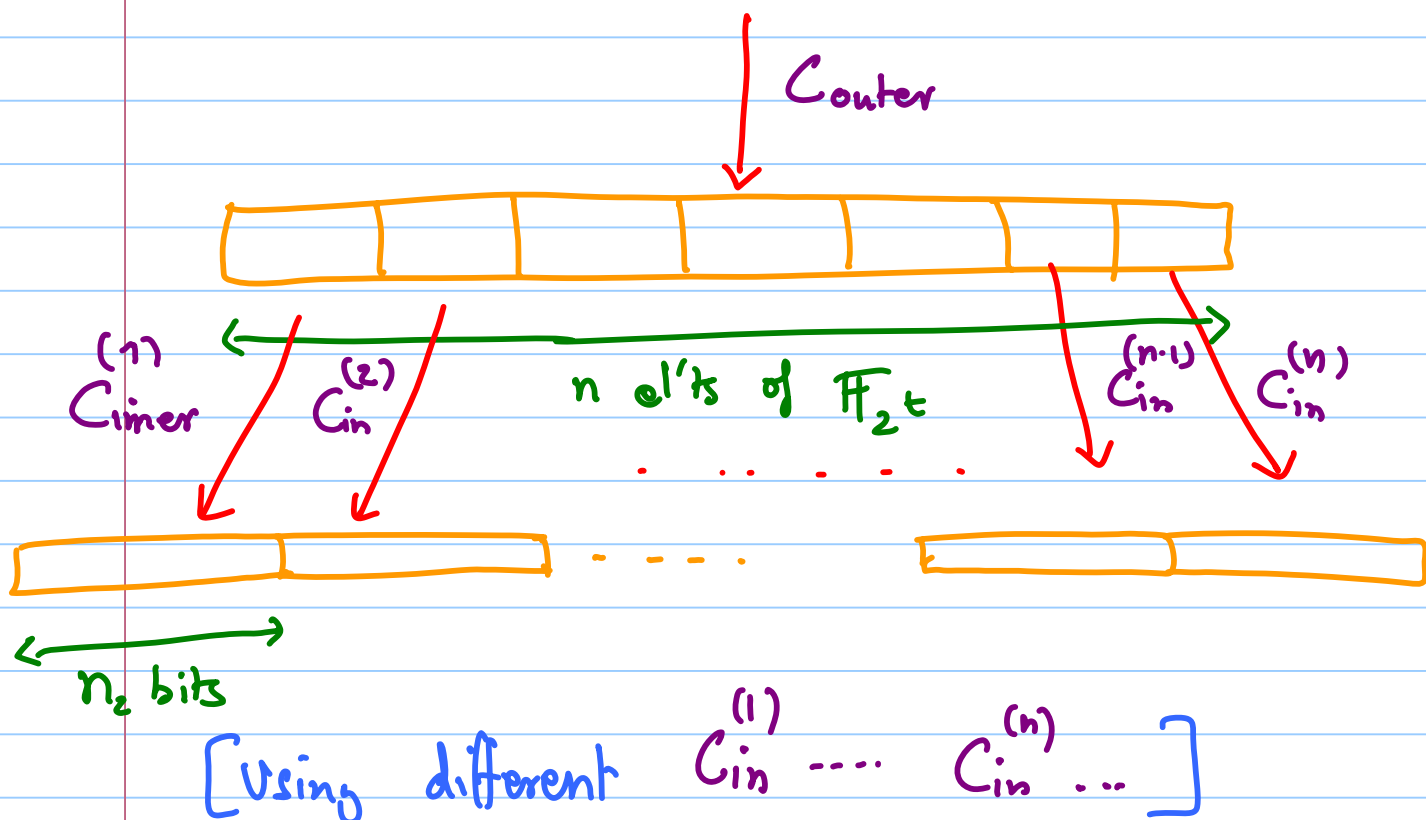 C outer
C inner (1)
C in (2)
n el'ts of F_2^t
C in (n-1)
C in (n)
n_2 bits
[Using different C in (1) ---- C in (n) ...]